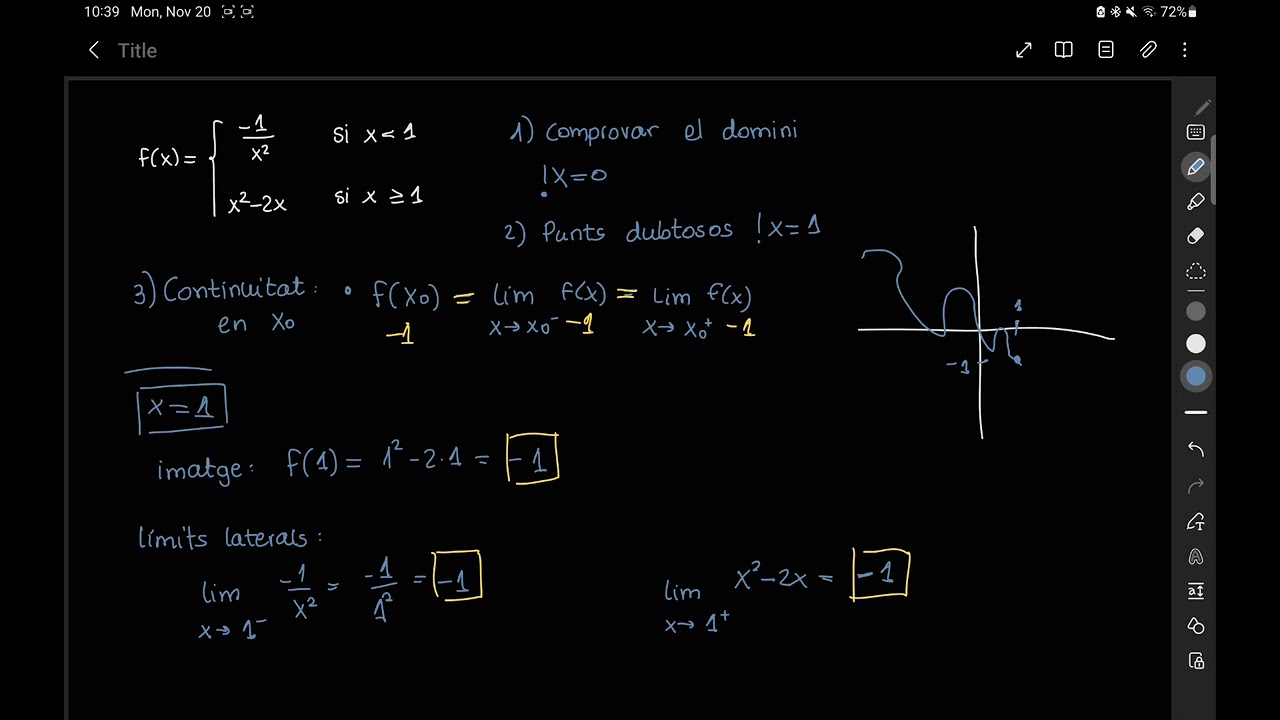 10:39 Mon, Nov 20
72%
Title
f(x) = { -1/x² si x < 1
x²-2x si x ≥ 1
1) Comprovar el domini
! x=0
2) Punts dubtosos ! x=1
3) Continuitat: • f(x₀) = lim f(x) = lim f(x)
en x₀ -1 x→x₀⁻ -1 x→x₀⁺ -1
1
-1
x=1
imatge: f(1) = 1²-2·1 = -1
límits laterals:
lim x→1⁻ -1/x² = -1/1² = -1
lim x→1⁺ x²-2x = -1